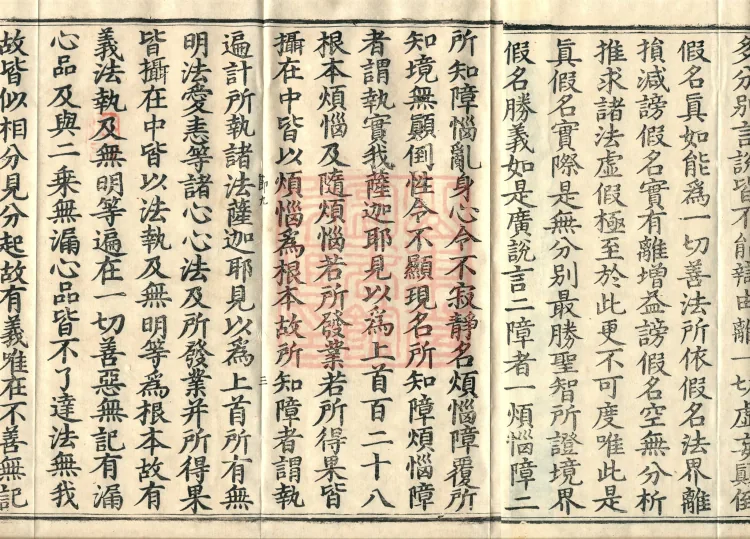 多分別言說皆不能辯由離一切虛妄顛倒
假名眞如能爲一切善法所依假名法界離
損減謗假名實有離增益謗假名空無分析
推求諸法虛假極至於此更不可度唯此是
眞假名實際是無分別最勝聖智所證境界
假名勝義如是廣說言二障者一煩惱障二
所知障惱亂身心令不寂靜名煩惱障覆所
知境無顚倒性令不顯現名所知障煩惱障
者謂執實我薩迦耶見以爲上首百二十八
根本煩惱及隨煩惱若所發業若所得果皆
攝在中皆以煩惱爲根本故所知障者謂執
三
遍計所執諸法薩迦耶見以爲上首所有無
明法愛恚等諸心心法及所發業幷所得果
皆攝在中皆以法執及無明等爲根本故有
義法執及無明等遍在一切善惡無記有漏
心品及與二乘無漏心品皆不了達法無我
故皆似相分見分起故有義唯在不善無記